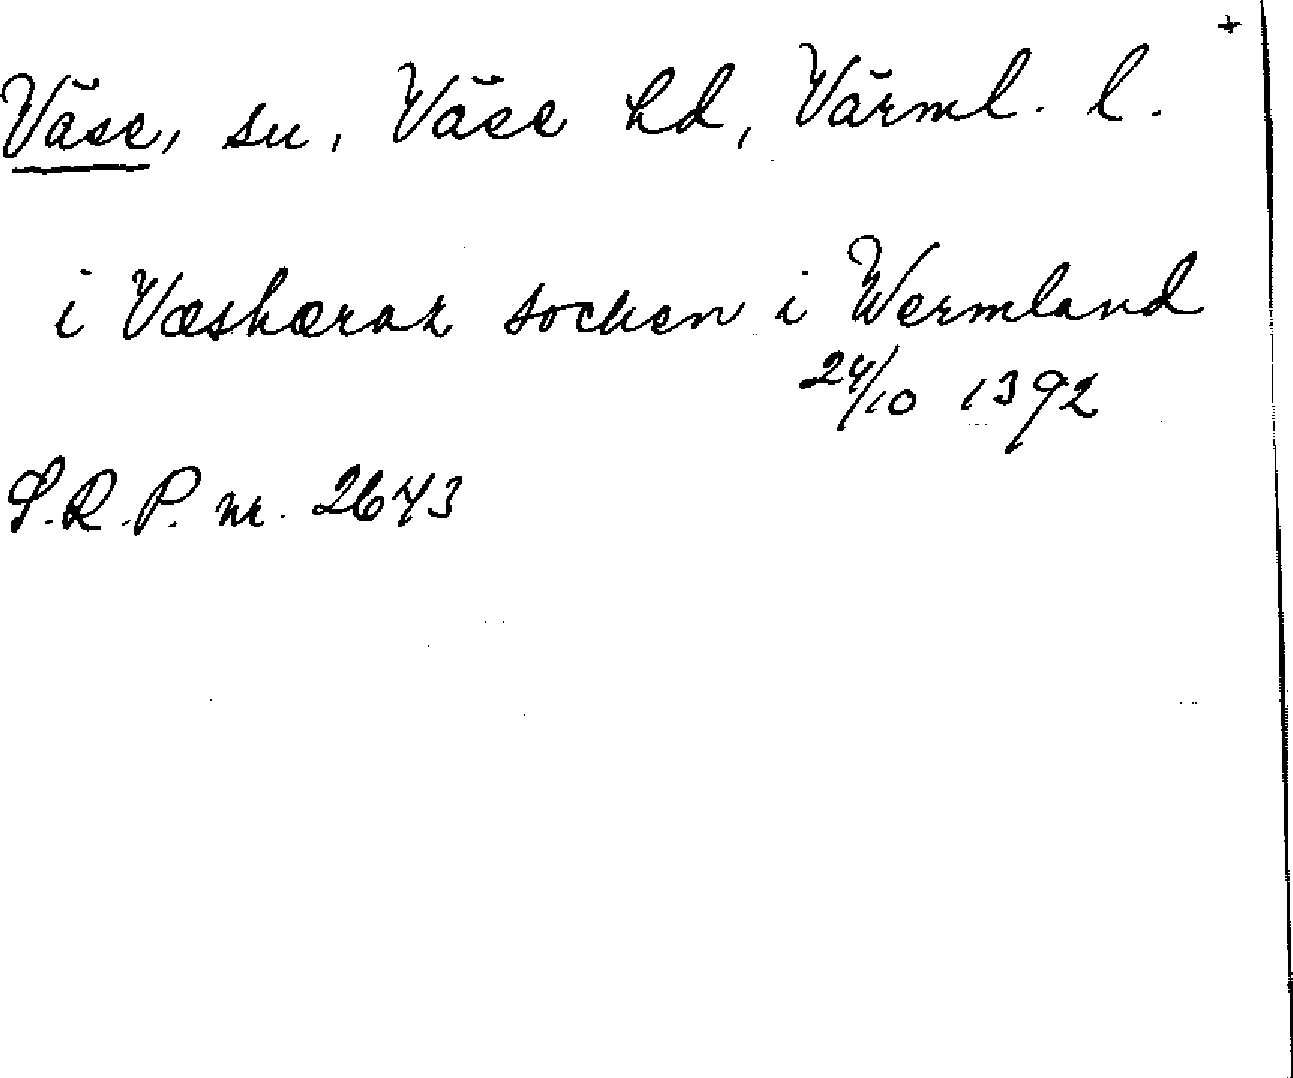 +
Väse, sn, Väse hd, Värml. l.
i Væshærar socken i Wermland
24/10 1392
S.R.P. nr. 2643